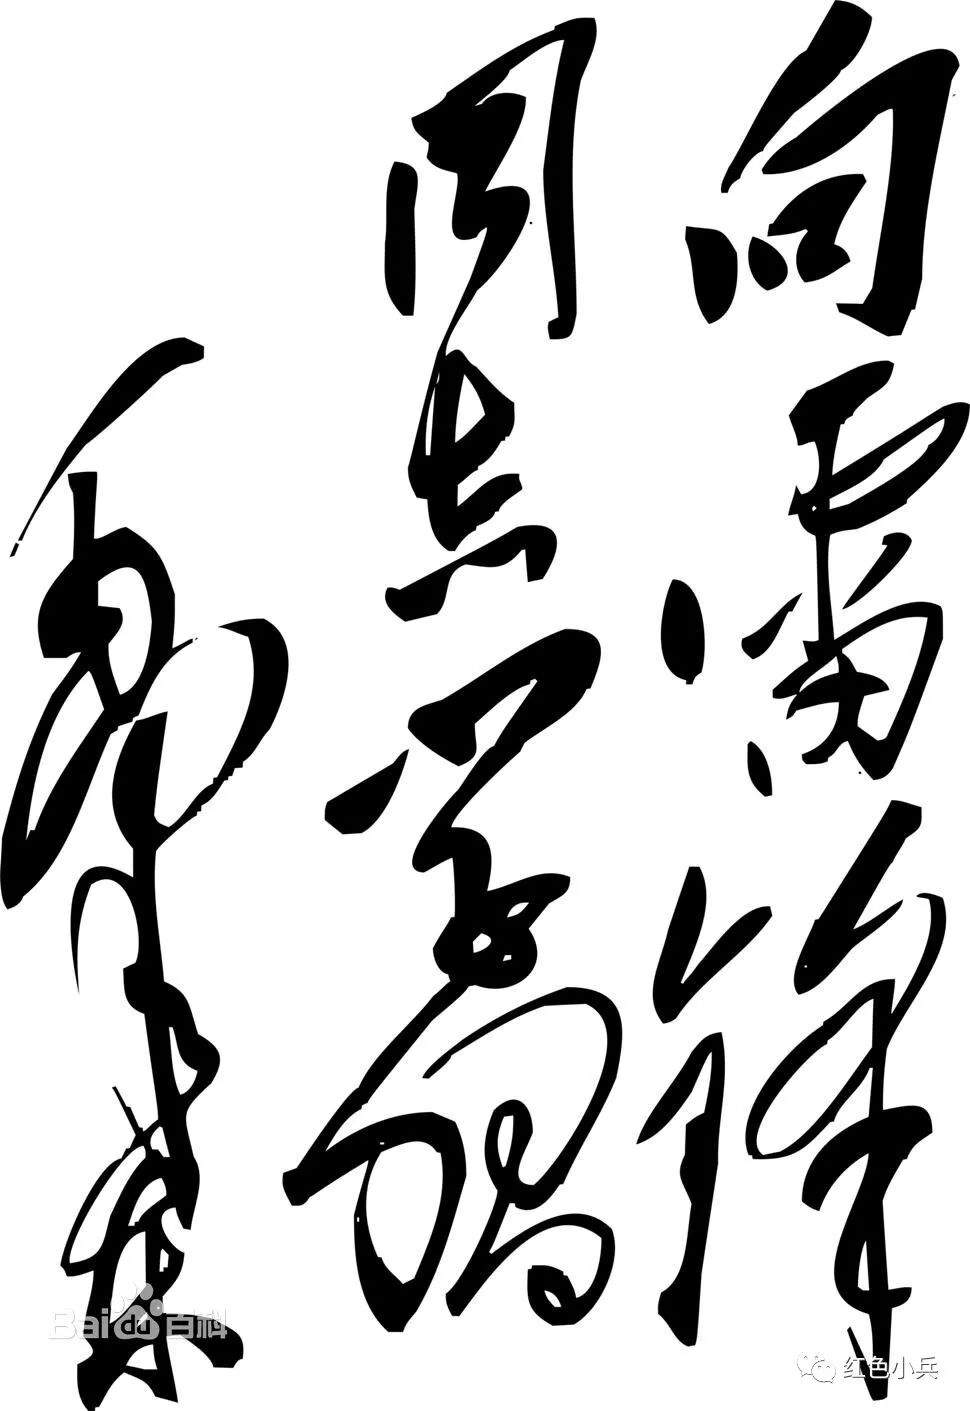 向雷锋
同志学习
毛泽东
Baidu百科
红色小兵